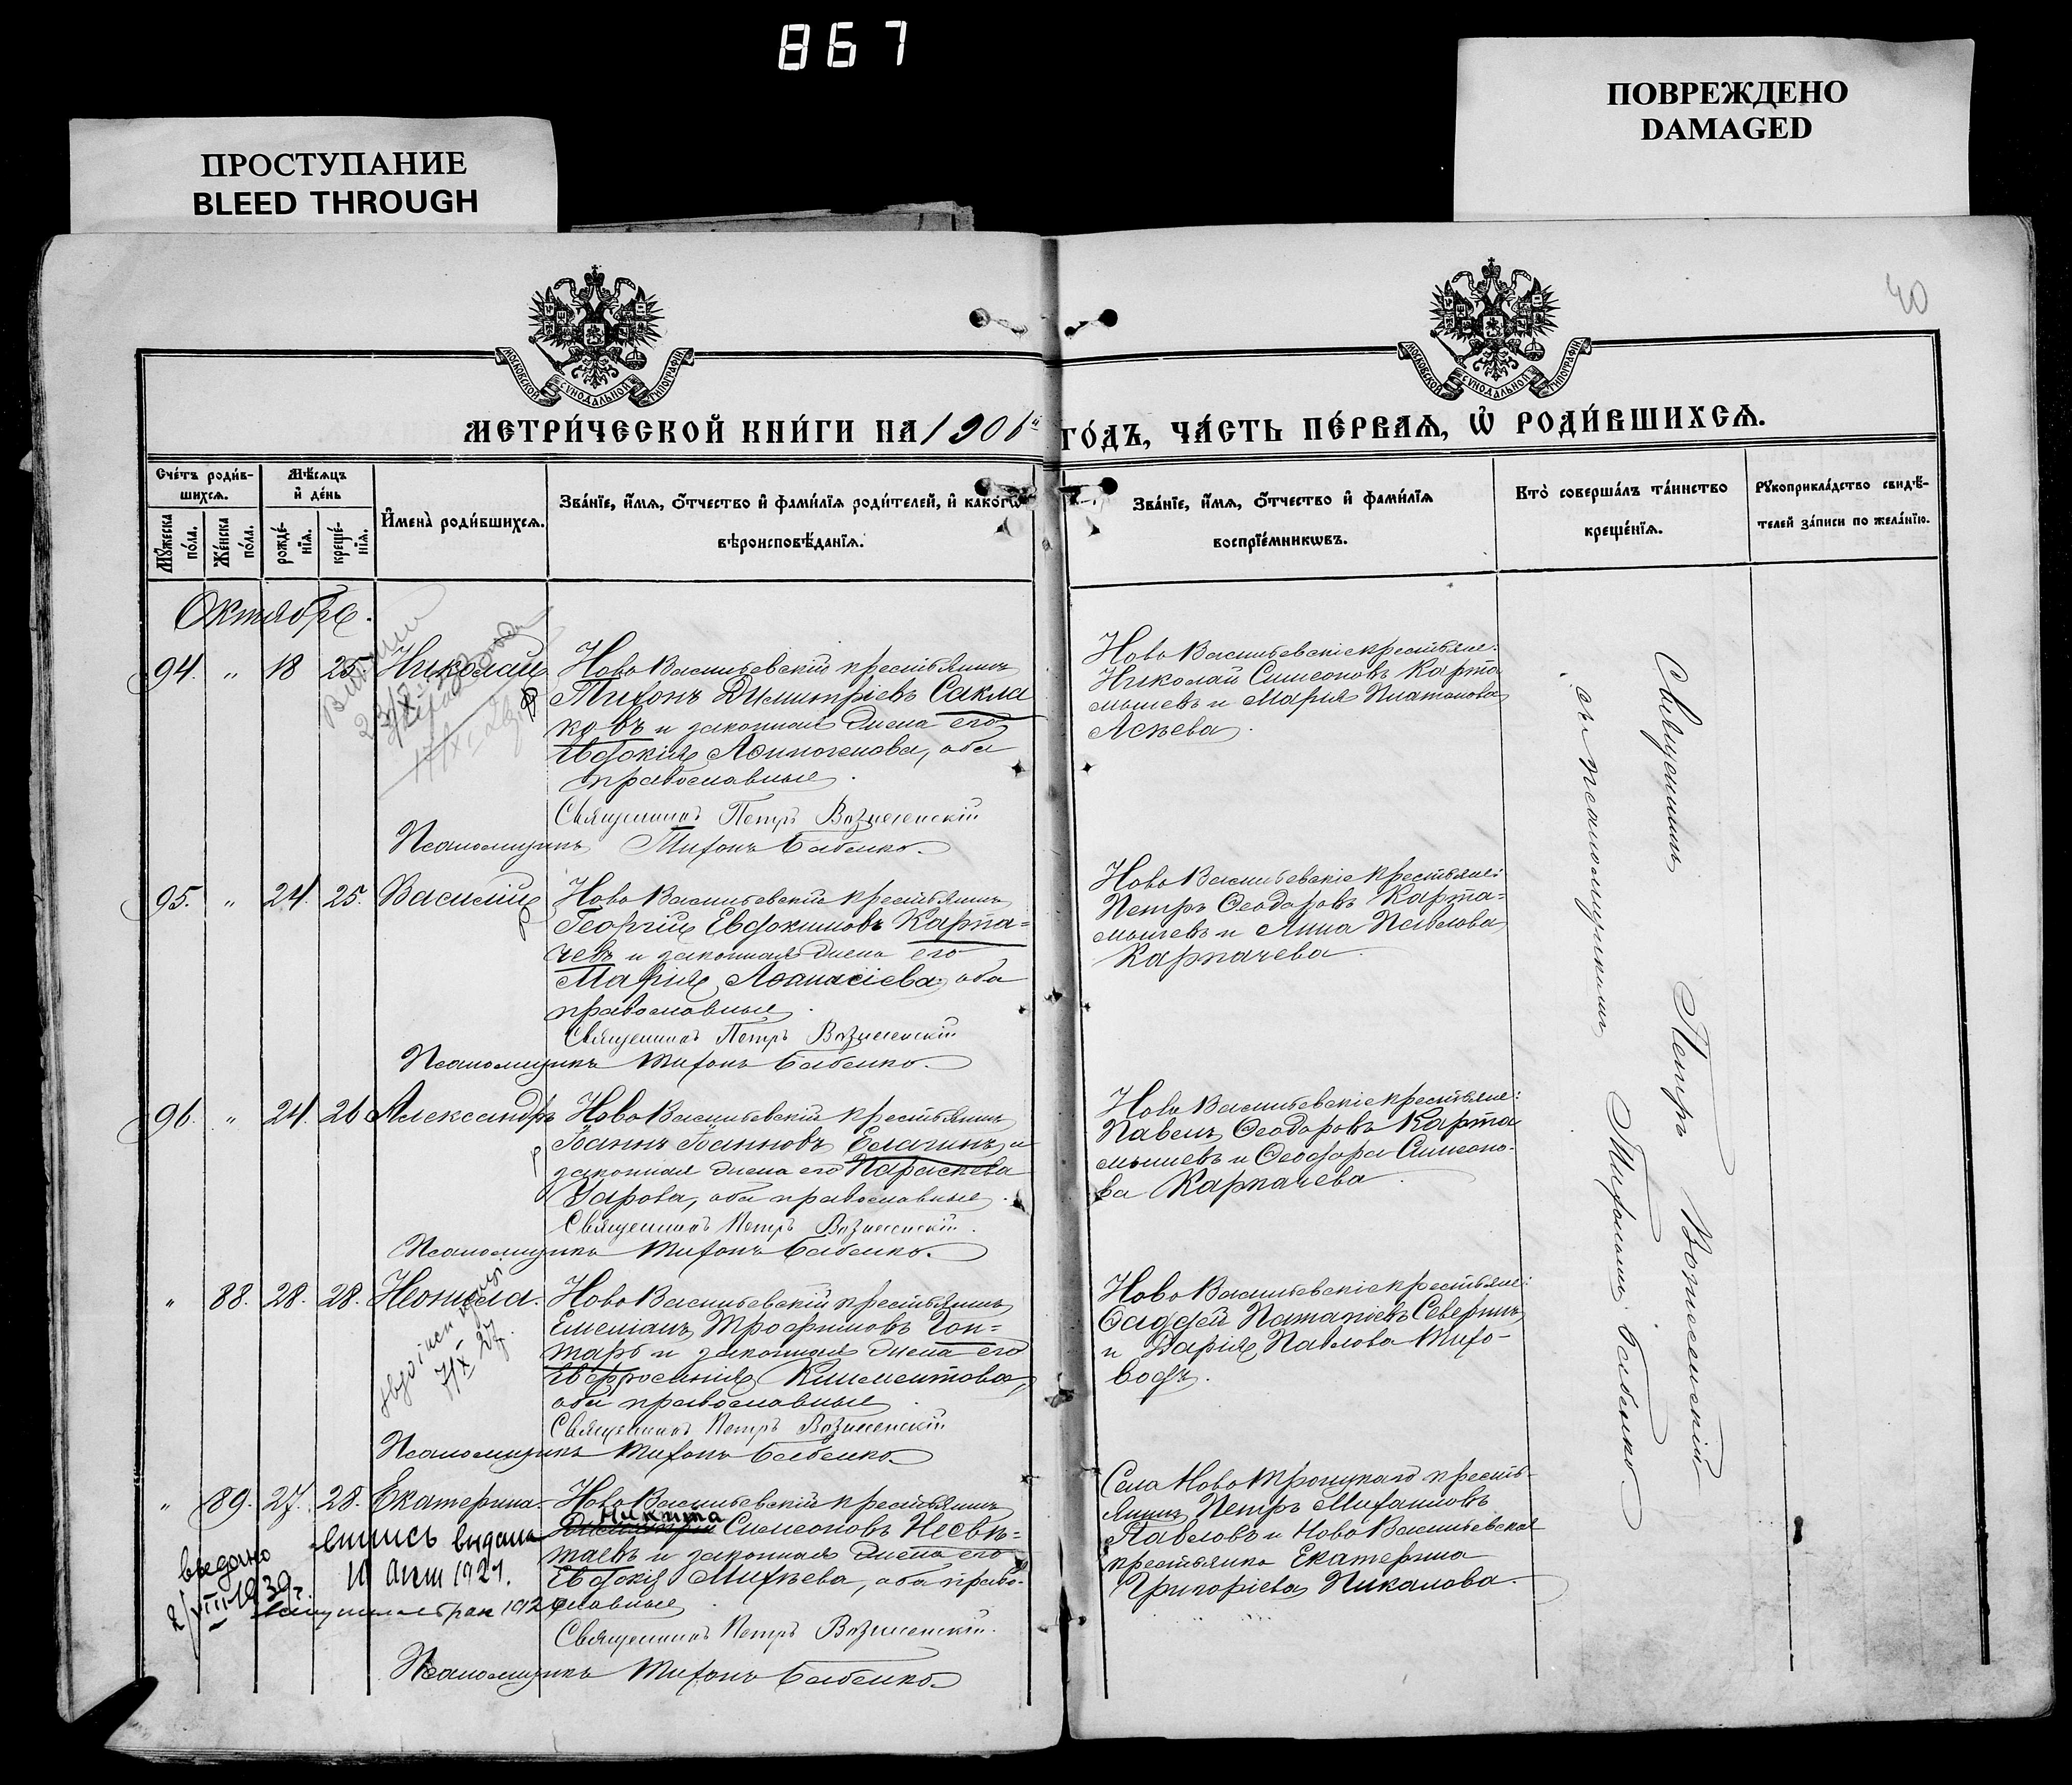 867
ПРОСТУПАНИЕ
BLEED THROUGH
ПОВРЕЖДЕНО
DAMAGED
40
МОСКОВСКОЙ СУНОДАЛЬНОЙ ТИПОГРАФІИ
МОСКОВСКОЙ СУНОДАЛЬНОЙ ТИПОГРАФІИ
МЕТРИ́ЧЕСКОЙ КНИ́ГИ НА 1906й ГО́ДЪ, ЧА́СТЬ ПЕ́РВАѦ, Ѡ҆ РОДИ́ВШИХСѦ.
Сче́тъ роди́в-
шихсѧ.
Мꙋ́жеска по́ла.
Же́нска по́ла.
Мѣ́сѧцъ
и҆ де́нь
рожде́-
нїѧ.
креще́-
нїѧ.
И҆мена̀ роди́вшихсѧ.
Зва́нїе, и҆́мѧ, ѻ҆́тчество и҆ фами́лїѧ роди́телей, и҆ како́гѡ
вѣроисповѣ́данїѧ.
Зва́нїе, и҆́мѧ, ѻ҆́тчество и҆ фами́лїѧ
воспрїе́мникѡвъ.
Кто̀ соверша́лъ та́инство
креще́нїѧ.
Рꙋкоприкла́дство свидѣ́-
телей за́писи по жела́нїю.
Октябрь.
94. " 18 25. Николай
Ново Васильевскій крестьянинъ
Тихонъ Димитріевъ Сакла
ковъ и законная жена его
Евдокія Аѳиногенова, оба
православные.
Священникъ Петръ Вознесенскій
Псаломщикъ Тихонъ Бабенко.
Ново Васильевскіе крестьяне:
Николай Симеоновъ Карта
мышевъ и Марія Платонова
Асѣева.
95. " 24. 25. Василій
Ново Васильевскій крестьянинъ
Георгій Евдокимовъ Карпа=
чевъ и законная жена его
Марія Аѳанасіева, оба
православные.
Священникъ Петръ Вознесенскій
Псаломщикъ Тихонъ Бабенко.
Ново Васильевскіе крестьяне:
Петръ Ѳеодоровъ Карта=
мышевъ и Анна Павлова
Карпачева.
96. " 24. 26 Александръ
Ново Васильевскій крестьянинъ
Іоаннъ Іоанновъ Елагинъ и
законная жена его Параскева
Уарова, оба православные.
Священникъ Петръ Вознесенскій.
Псаломщикъ Тихонъ Бабенко.
Ново Васильевскіе крестьяне:
Павелъ Ѳеодоровъ Карта
мышевъ и Ѳеодора Симеоно-
ва Карпачева.
" 88. 28. 28. Неонила.
Ново Васильевскій крестьянинъ
Емеліанъ Трофимовъ Гон=
таръ и законная жена его
Евфросинія Климентова,
оба православные.
Священникъ Петръ Вознесенскій
Псаломщикъ Тихонъ Бабенко.
Ново Васильевскіе крестьяне:
Ѳаддей Потапіевъ Северинъ
и Дарія Павлова Тихо-
водъ.
" 89. 27. 28. Екатерина.
Ново Васильевскій крестьянинъ
Никита
Симеоновъ Несвѣ=
таевъ и законная жена его
Евдокія Михѣева, оба право-
славные.
Священникъ Петръ Вознесенскій.
Псаломщикъ Тихонъ Бабенко.
выпись выдана
10 1927.
Села Ново Троицкаго кресть-
янинъ Петръ Михаиловъ
Павловъ и Ново Васильевская
крестьянка Екатерина
Григоріева Пикалова.
Священникъ Петръ Вознесенскій
съ псаломщикомъ Тихономъ Бабенко